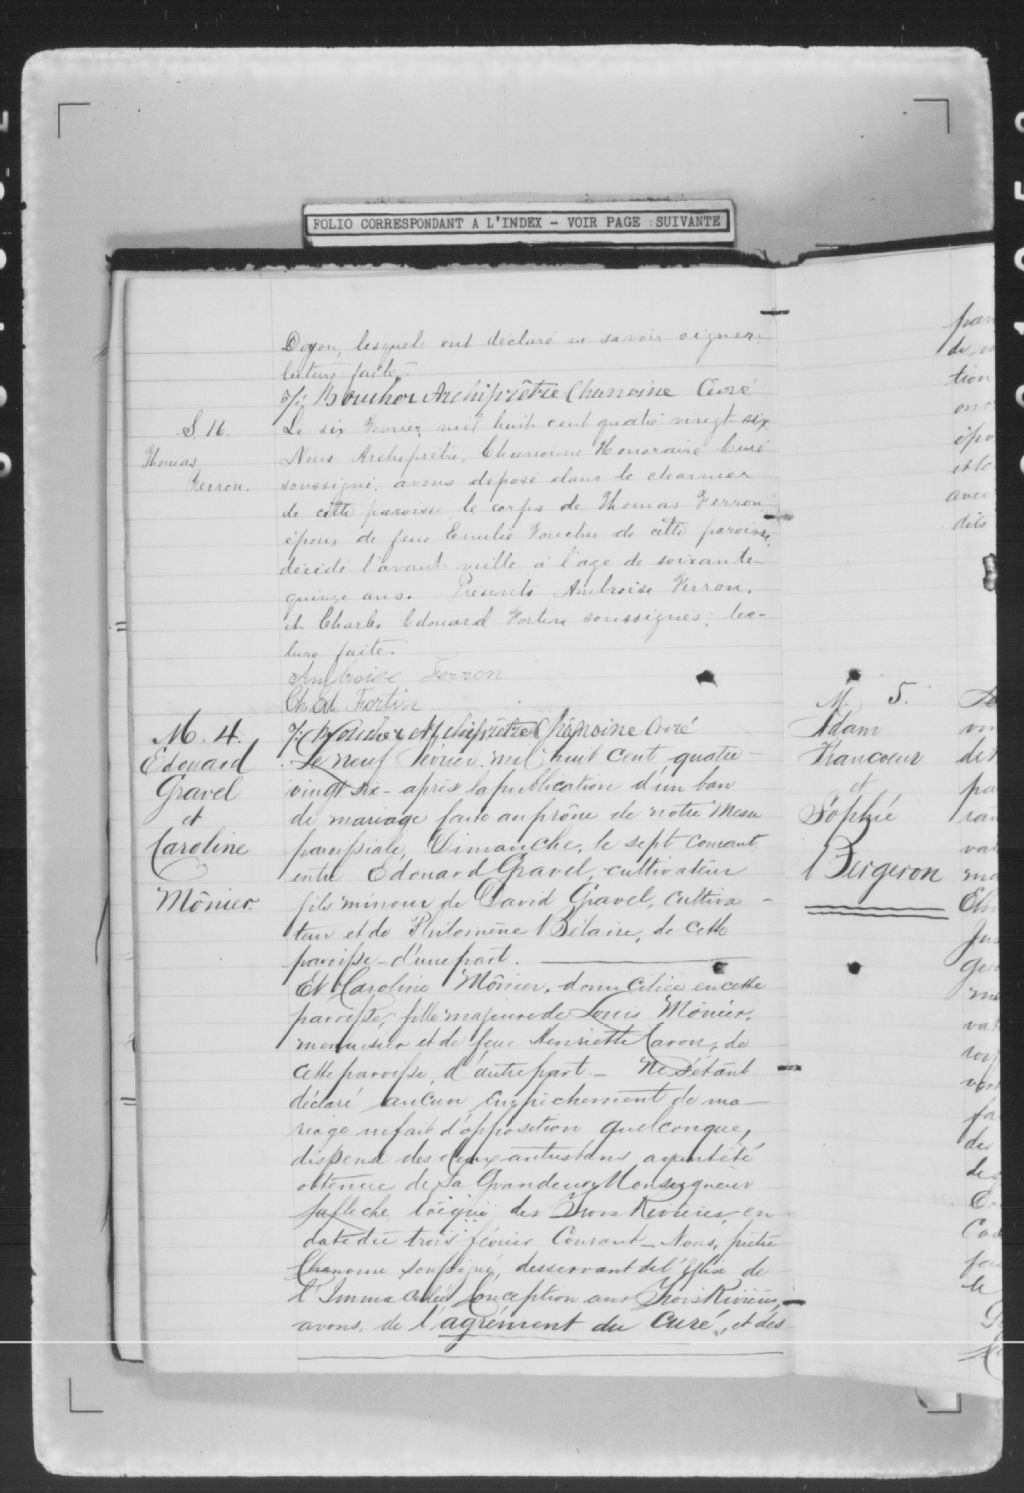 FOLIO CORRESPONDANT A L'INDEX - VOIR PAGE SUIVANTE
Doyon, lesquels ont déclaré ne savoir signer.
lecture faite.
Boucher Archiprêtre Chanoine Curé
S. 16.
Thomas
Ferron.
Le six Fevrier mil huit cent quatre vingt six
Nous Archiprêtre, Chanoine Honoraire Curé
soussigné, avons déposé dans le charnier
de cette paroisse le corps de Thomas Ferron,
époux de feue Emilie Foucher de cette paroisse,
décédé l'avant veille à l'age de soixante
quinze ans. Présents Ambroise Ferron,
et Charles Edouard Fortin soussignés; lec-
ture faite.
Ambroise Ferron
Ch. Ed. Fortin
Boucher Archiprêtre Chanoine Curé
M. 4.
Edouard
Gravel
et
Caroline
Mônier.
Le neuf Février mil huit cent quatre
vingt six - après la publication d'un ban
de mariage faite au prône de notre Messe
paroissiale, Dimanche, le sept courant
entre Edouard Gravel, cultivateur
fils mineur de David Gravel, cultiva-
teur et de Philomène Bélaire, de cette
paroisse - d'une part.
Et Caroline Mônier, domiciliée en cette
paroisse, fille majeure de Louis Mônier,
menuisier et de feue Henriette Caron, de
cette paroisse, d'autre part. - Ne s'étant
déclaré aucun empêchement de ma-
riage ni fait d'opposition quelconque,
dispense des deux autres bans ayant été
obtenue de Sa Grandeur Monseigneur
Laflèche, évêque des Trois Rivières, en
date du trois février Courant - Nous, prêtre
Chanoine soussigné, desservant de l'Eglise de
l'Immaculée Conception aux Trois Rivières,
avons, de l'agrément du Curé, et des
M. 5.
Adam
Francoeur
et
Sophie
Bergeron
tion
avec
dits